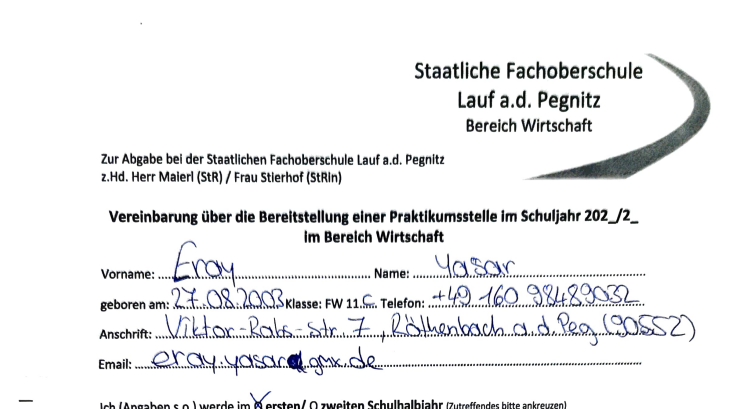 Staatliche Fachoberschule
Lauf a.d. Pegnitz
Bereich Wirtschaft
Zur Abgabe bei der Staatlichen Fachoberschule Lauf a.d. Pegnitz
z.Hd. Herr Maierl (StR) / Frau Stierhof (StRin)
Vereinbarung über die Bereitstellung einer Praktikumsstelle im Schuljahr 202_/2_
im Bereich Wirtschaft
Vorname: Eray Name: Yasar
geboren am: 27.08.2003 Klasse: FW 11.C Telefon: +49 160 98489032
Anschrift: Viktor-Rabs-Str. 7, Röthenbach a.d. Peg (90552)
Email: eray.yasar@gmx.de
Ich (Angaben s.o.) werde im X ersten/ O zweiten Schulhalbjahr (Zutreffendes bitte ankreuzen)